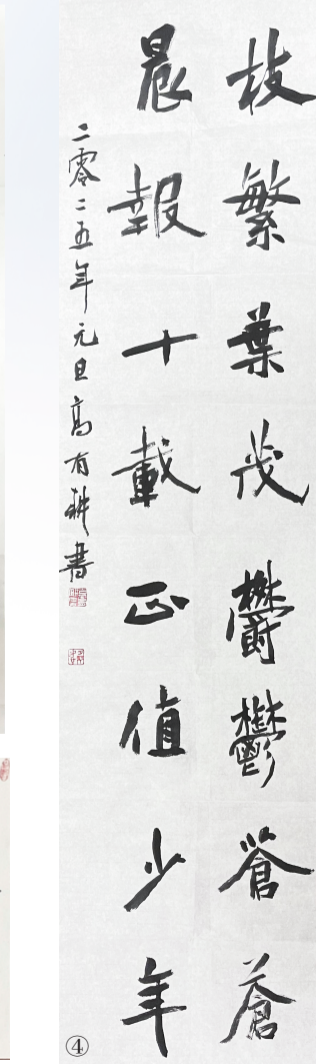 枝繁葉茂鬱鬱蒼蒼
晨報十載正值少年
二零二五年元旦高有耕書
④